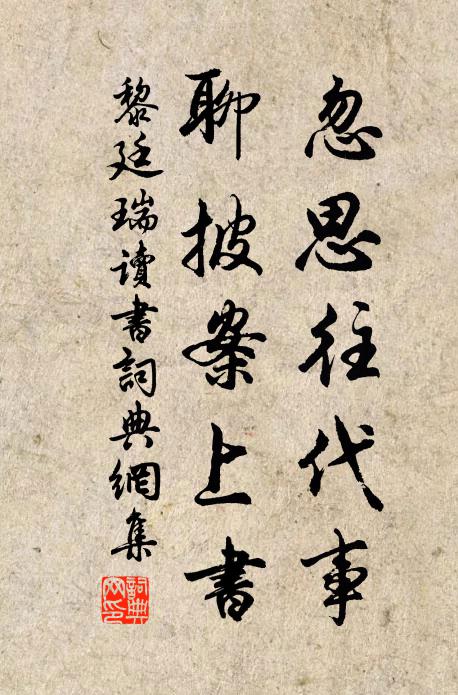 忽思往代事
聊披案上書
黎廷瑞讀書詞典網集
詞典
网印